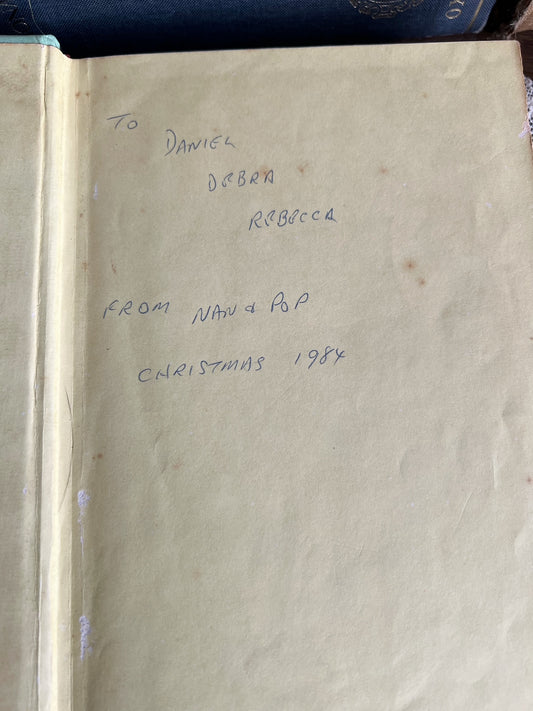 TO
DANIEL
DEBRA
REBECCA
FROM NAN & POP
CHRISTMAS 1984